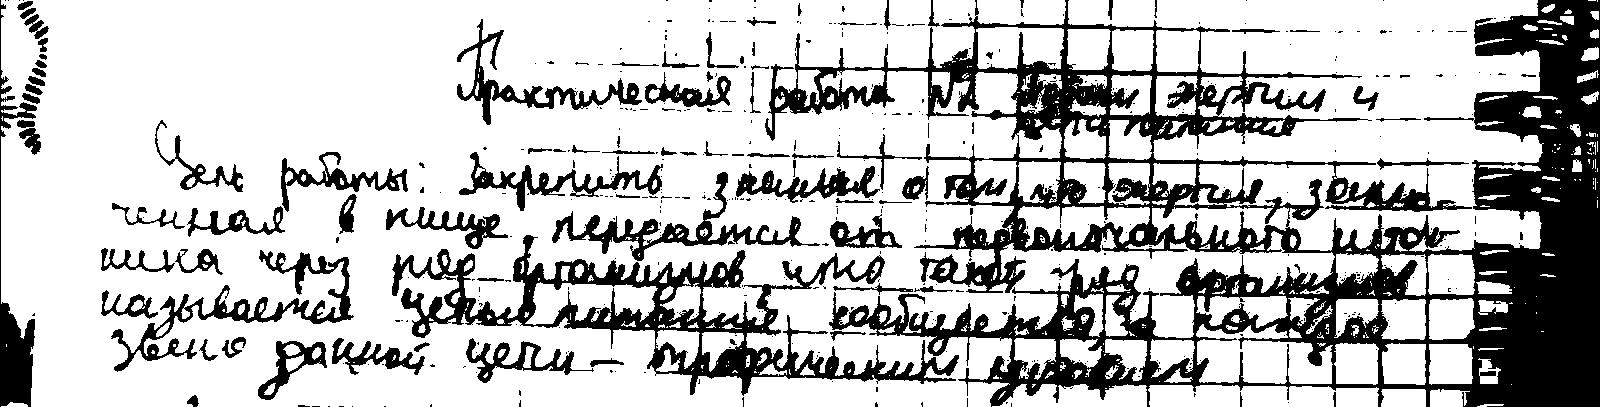 Практическая работа №2. Потоки энергии и
цепи питания
Цель работы: Закрепить знания о том, что энергия, заклю-
ченная в пище, передаётся от первоначального источ-
ника через ряд организмов, что такой ряд организмов
называется цепью питания сообщества, а каждое
звено данной цепи – трофическим уровнем